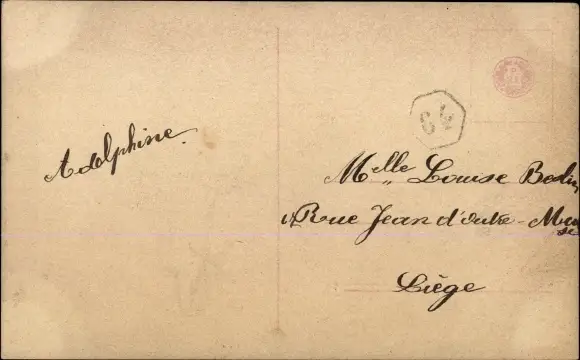 Adelphine.
Melle Louise
Rue Jean d'outre-Meuse
Liège